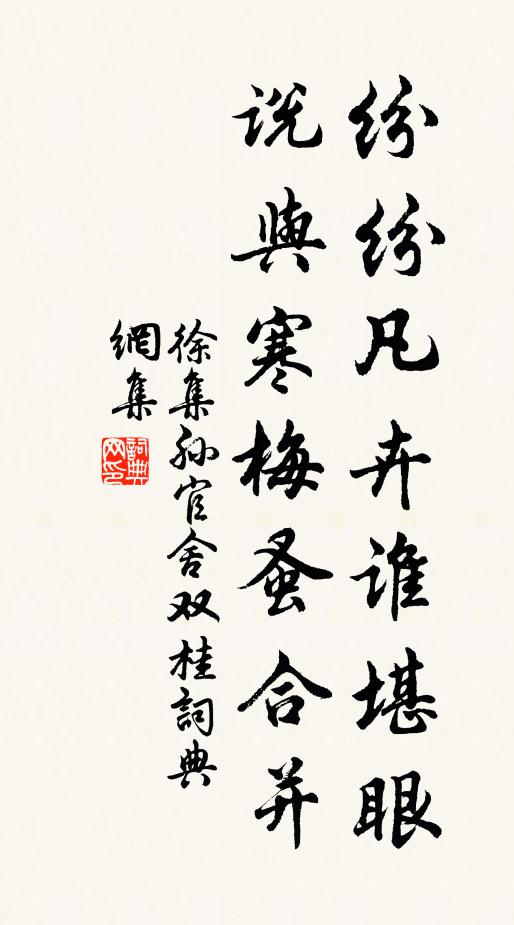 纷纷凡卉谁堪眼
说与寒梅蚤合并
徐集孙官舍双桂詞典
網集
詞典
网印